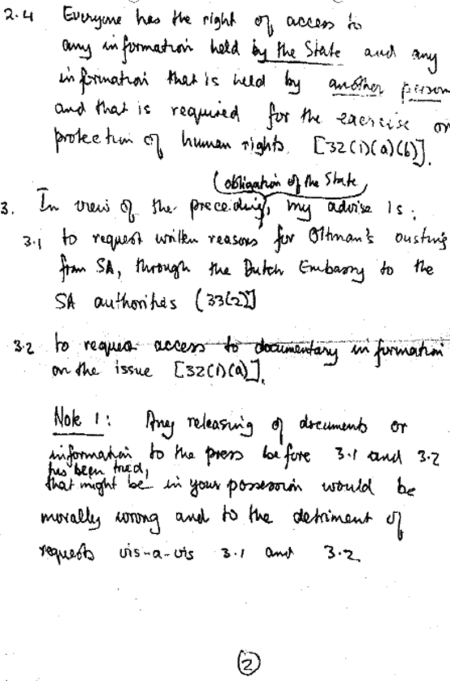 2.4 Everyone has the right of access to
any information held by the State and any
information that is held by another person
and that is required for the exercise or
protection of human rights. [32(1)(a)(b)].
(obligation of the State)
3. In view of the preceding, my advise is:
3.1 to request written reasons for Oltman's ousting
from SA, through the Dutch Embassy to the
SA authorities (33(2)]
3.2 to request access to documentary information
on the issue [32(1)(a)].
Note 1: Any releasing of documents or
information to the press before 3.1 and 3.2
has been tried,
that might be in your possession would be
morally wrong and to the detriment of
requests vis-a-vis 3.1 and 3.2
2